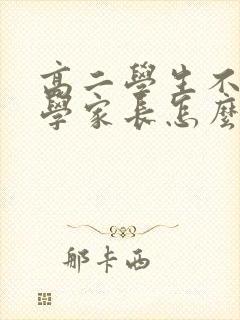 高二學生不
學家長怎麼
那卡西